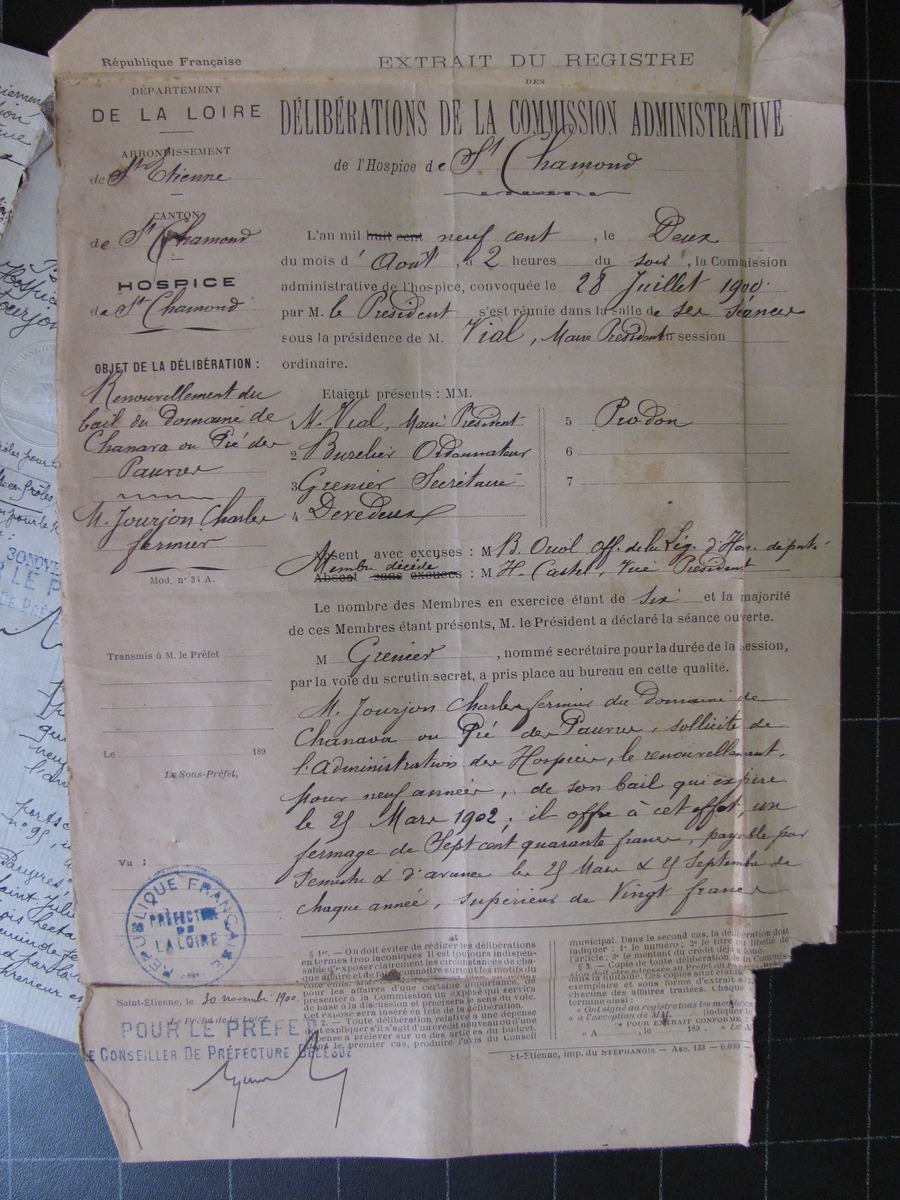 République Française
DÉPARTEMENT
DE LA LOIRE
ARRONDISSEMENT
de St Etienne
CANTON
de St Chamond
HOSPICE
de St Chamond
OBJET DE LA DÉLIBÉRATION :
Renouvellement du
bail du Domaine de
Chanava ou Pié des
Pauvres
M. Jourjon Charles
fermier
Mod. n° 34 A.
Transmis à M. le Préfet
Le 189
Le Sous-Préfet,
Vu :
RÉPUBLIQUE FRANÇAISE
PRÉFECTURE
DE
LA LOIRE
Saint-Etienne, le 30 novembre 1900
Le Préfet de la Loire,
POUR LE PRÉFET
LE CONSEILLER DE PRÉFECTURE DÉLÉGUÉ
EXTRAIT DU REGISTRE
DES
DÉLIBÉRATIONS DE LA COMMISSION ADMINISTRATIVE
de l'Hospice de St Chamond
L'an mil huit cent neuf cent, le Deux
du mois d'Août, à 2 heures du soir, la Commission
administrative de l'hospice, convoquée le 28 Juillet 1900
par M. le Président s'est réunie dans la salle de ses séances
sous la présidence de M. Vial, Maire Président en session
ordinaire.
Etaient présents : MM.
M. Vial, Maire Président
2 Burelier Ordonnateur
3 Grenier Secrétaire
4 Devedeux
5 Prodon
6
7
Absent avec excuses : M B. Oriol off. de la Lég. d'Hon. député
Membre décédé
Absent sans excuses : M H. Castel, Vice Président
Le nombre des Membres en exercice étant de six et la majorité
de ces Membres étant présents, M. le Président a déclaré la séance ouverte.
M Grenier, nommé secrétaire pour la durée de la session,
par la voie du scrutin secret, a pris place au bureau en cette qualité.
M. Jourjon Charles fermier du Domaine de
Chanava ou Pié des Pauvres, sollicite de
l'Administration des Hospices, le renouvellement,
pour neuf années, de son bail qui expire
le 25 Mars 1902 ; il offre à cet effet, un
fermage de Sept cent quarante francs, payable par
Semestre & d'avance les 25 Mars & 25 Septembre de
chaque année, supérieur de Vingt francs
§ 1er. — On doit éviter de rédiger les délibérations
en termes trop laconiques. Il est toujours indispensable d'exposer clairement les circonstances de chaque affaire
présenter à la Commission un exposé qui servira
de base à la discussion et précisera le sens du vote.
Cet exposé sera inséré en tête de la délibération.
2. — Toute délibération relative à une dépense
expliquer s'il s'agit d'un crédit nouveau ou d'une
dépense à prélever sur un des articles du budget.
Dans le premier cas, produire l'avis du Conseil
municipal. Dans le second cas, la délibération doit
indiquer : 1° le numéro ; 2° le titre ou libellé de
l'article ; 3° le montant du crédit déjà loué.
§ 3. — Copie de toute délibération de la Commis-
sion doit être adressée au Préfet
exemplaire et sous forme d'extrait
chacune des affaires traitées. Chaque
termine ainsi :
« Ont signé au registre tous les membres
« à l'exception de MM. (indiquer
« POUR EXTRAIT CONFORME
« A , le 189 . « Le M
St-Etienne, imp. du STÉPHANOIS — Ass. 133 — 6.000